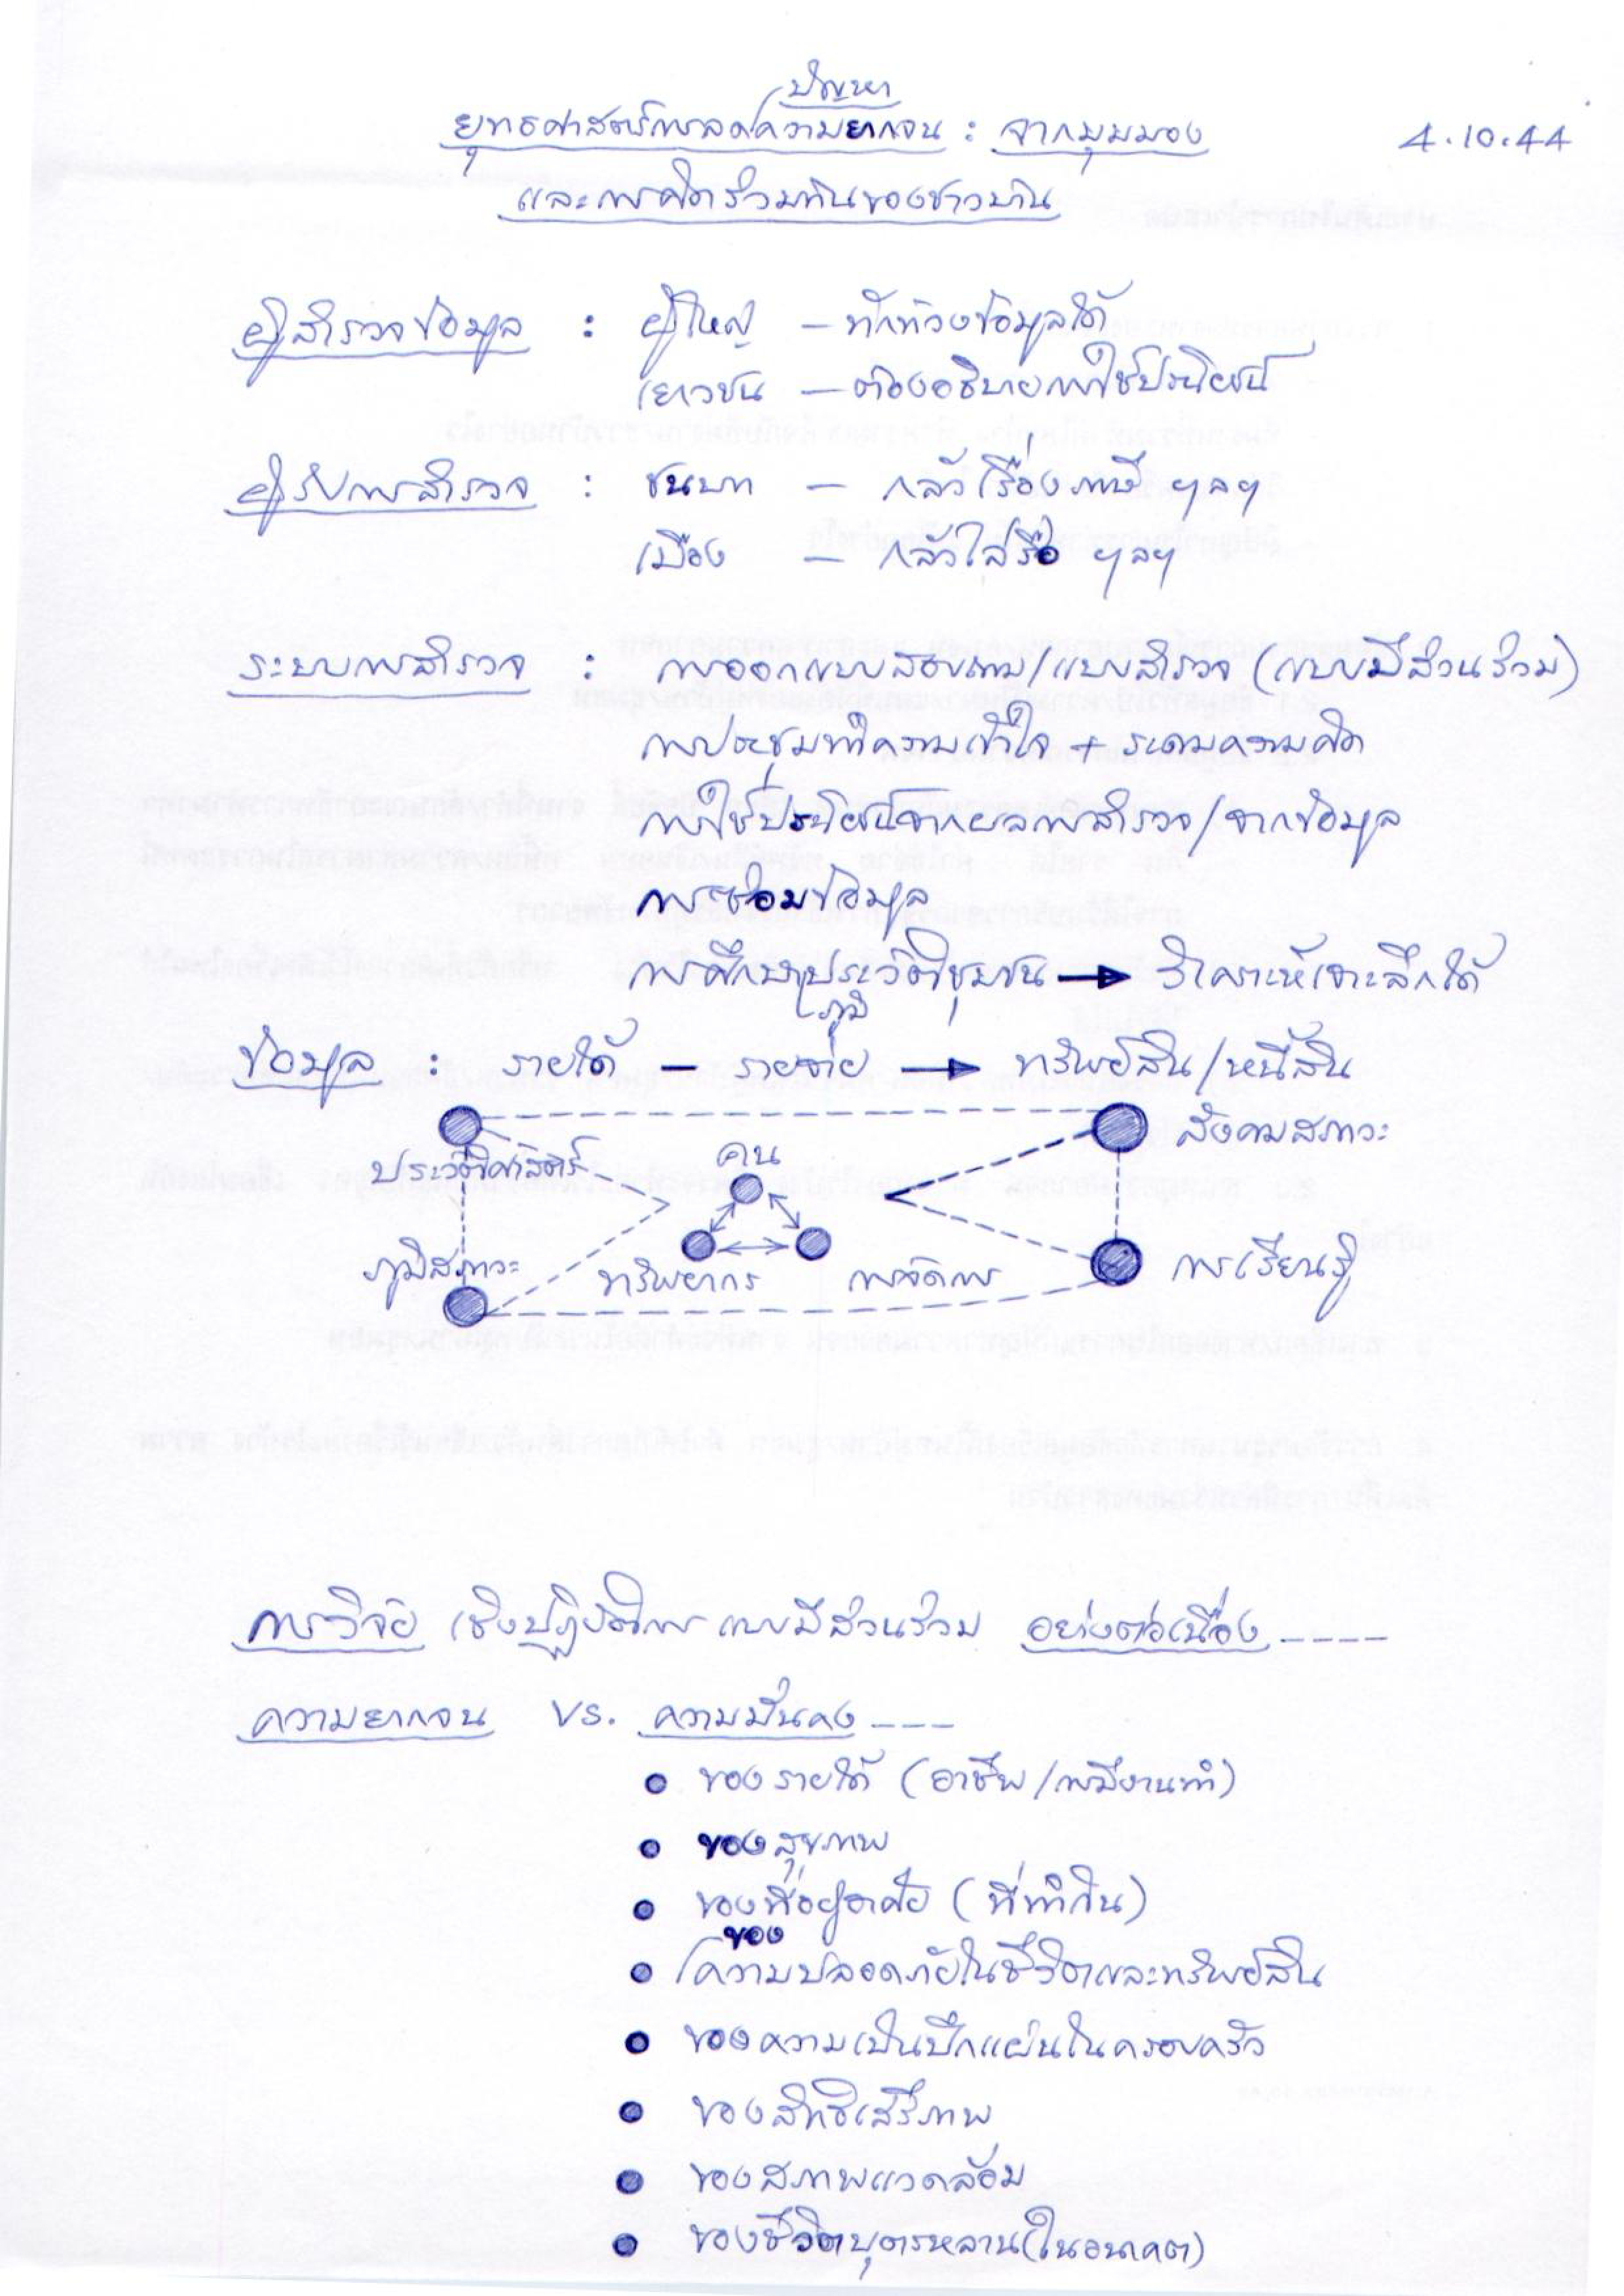 ปัญหา
ยุทธศาสตร์การลดความยากจน : จากมุมมอง 4.10.44
และการคิดร่วมกันของชาวบ้าน
ผู้สำรวจข้อมูล : ผู้ใหญ่ – ทักท้วงข้อมูลได้
เยาวชน – ต้องอธิบายการใช้ประโยชน์
ผู้รับการสำรวจ : ชนบท – กลัวเรื่องภาษี ฯลฯ
เมือง – กลัวไล่รื้อ ฯลฯ
ระบบการสำรวจ : การออกแบบสอบถาม/แบบสำรวจ (แบบมีส่วนร่วม)
การประชุมทำความเข้าใจ + ระดมความคิด
การใช้ประโยชน์จากผลการสำรวจ/จากข้อมูล
การซ่อมข้อมูล
การศึกษาประวัติชุมชน → วิเคราะห์เจาะลึกได้
ภูมิ
ข้อมูล : รายได้ – รายจ่าย → ทรัพย์สิน/หนี้สิน
สังคมสภาวะ
ประวัติศาสตร์ คน
ภูมิสภาวะ ทรัพยากร การจัดการ การเรียนรู้
การวิจัย เชิงปฏิบัติการ แบบมีส่วนร่วม อย่างต่อเนื่อง ----
ความยากจน VS. ความมั่นคง ---
• ของรายได้ (อาชีพ/การมีงานทำ)
• ของสุขภาพ
• ของที่อยู่อาศัย (ที่ทำกิน)
ของ
• ความปลอดภัยในชีวิตและทรัพย์สิน
• ของความเป็นปึกแผ่นในครอบครัว
• ของสิทธิเสรีภาพ
• ของสภาพแวดล้อม
• ของชีวิตบุตรหลาน (ในอนาคต)